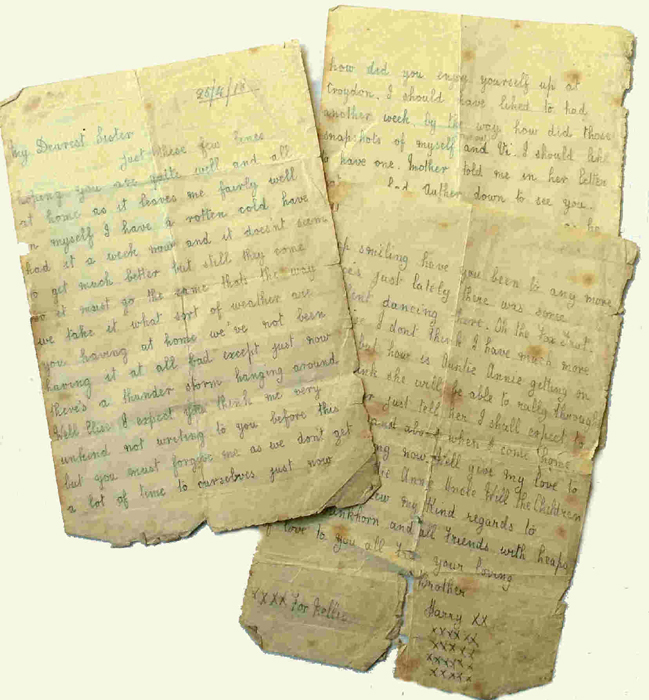 25/4/18
My Dearest Sister
just these few lines
hoping you are quite well and all
at home as it leaves me fairly well
in myself I have a rotten cold have
had it a week now and it doesnt seem
to get much better but still they come
so it must go the same thats the way
we take it what sort of weather are
you having at home we've not been
having it at all bad except just now
there's a thunder storm hanging around
Well Elsie I expect you think me very
unkind not writing to you before this
but you must forgive me as we dont get
a lot of time to ourselves just now
how did you enjoy yourself up at
Croydon. I should have liked to had
another week. by the way how did those
snapshots of myself and Vi. I should like
to have one. Mother told me in her letter
had Auther down to see you
as he
smiling have you been to any more
just lately there was some
dancing here. Oh the fox trut
I dont think I have much more
but how is Auntie Annie getting on
she will be able to rally through
just tell her I shall expect to
about when I come home
now will give my love to
Annie Uncle Will the Children
my kind regards to
and all friends with heaps
love to you all
your loving
Brother
Harry XX
XXXXX
XXXXX
XXXXX
XXXXX
XXXX for Nellie